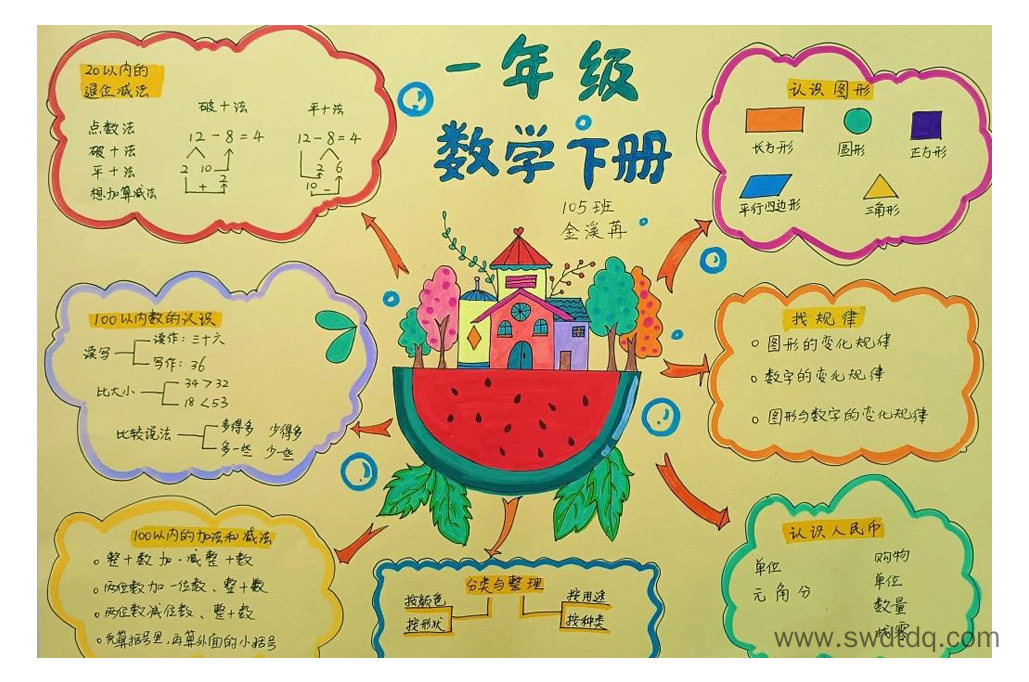 一年级
数学下册
105班
金溪苒
20以内的
退位减法
点数法
破十法
平十法
想加算减法
破十法
12-8=4
2 10
2
+
平十法
12-8=4
2 6
10
-
认识图形
长方形
圆形
正方形
平行四边形
三角形
100以内数的认识
读写
读作:三十六
写作:36
比大小
34>32
18<53
比较说法
多得多 少得多
多一些 少一些
找规律
图形的变化规律
数字的变化规律
图形与数字的变化规律
100以内的加法和减法
整十数加·减整十数
两位数加一位数、整十数
两位数减位数、整十数
先算括号里,再算外面的小括号
分类与整理
按颜色
按形状
按用途
按种类
认识人民币
单位
元角分
购物
单位
数量
找零
www.swdtdq.com